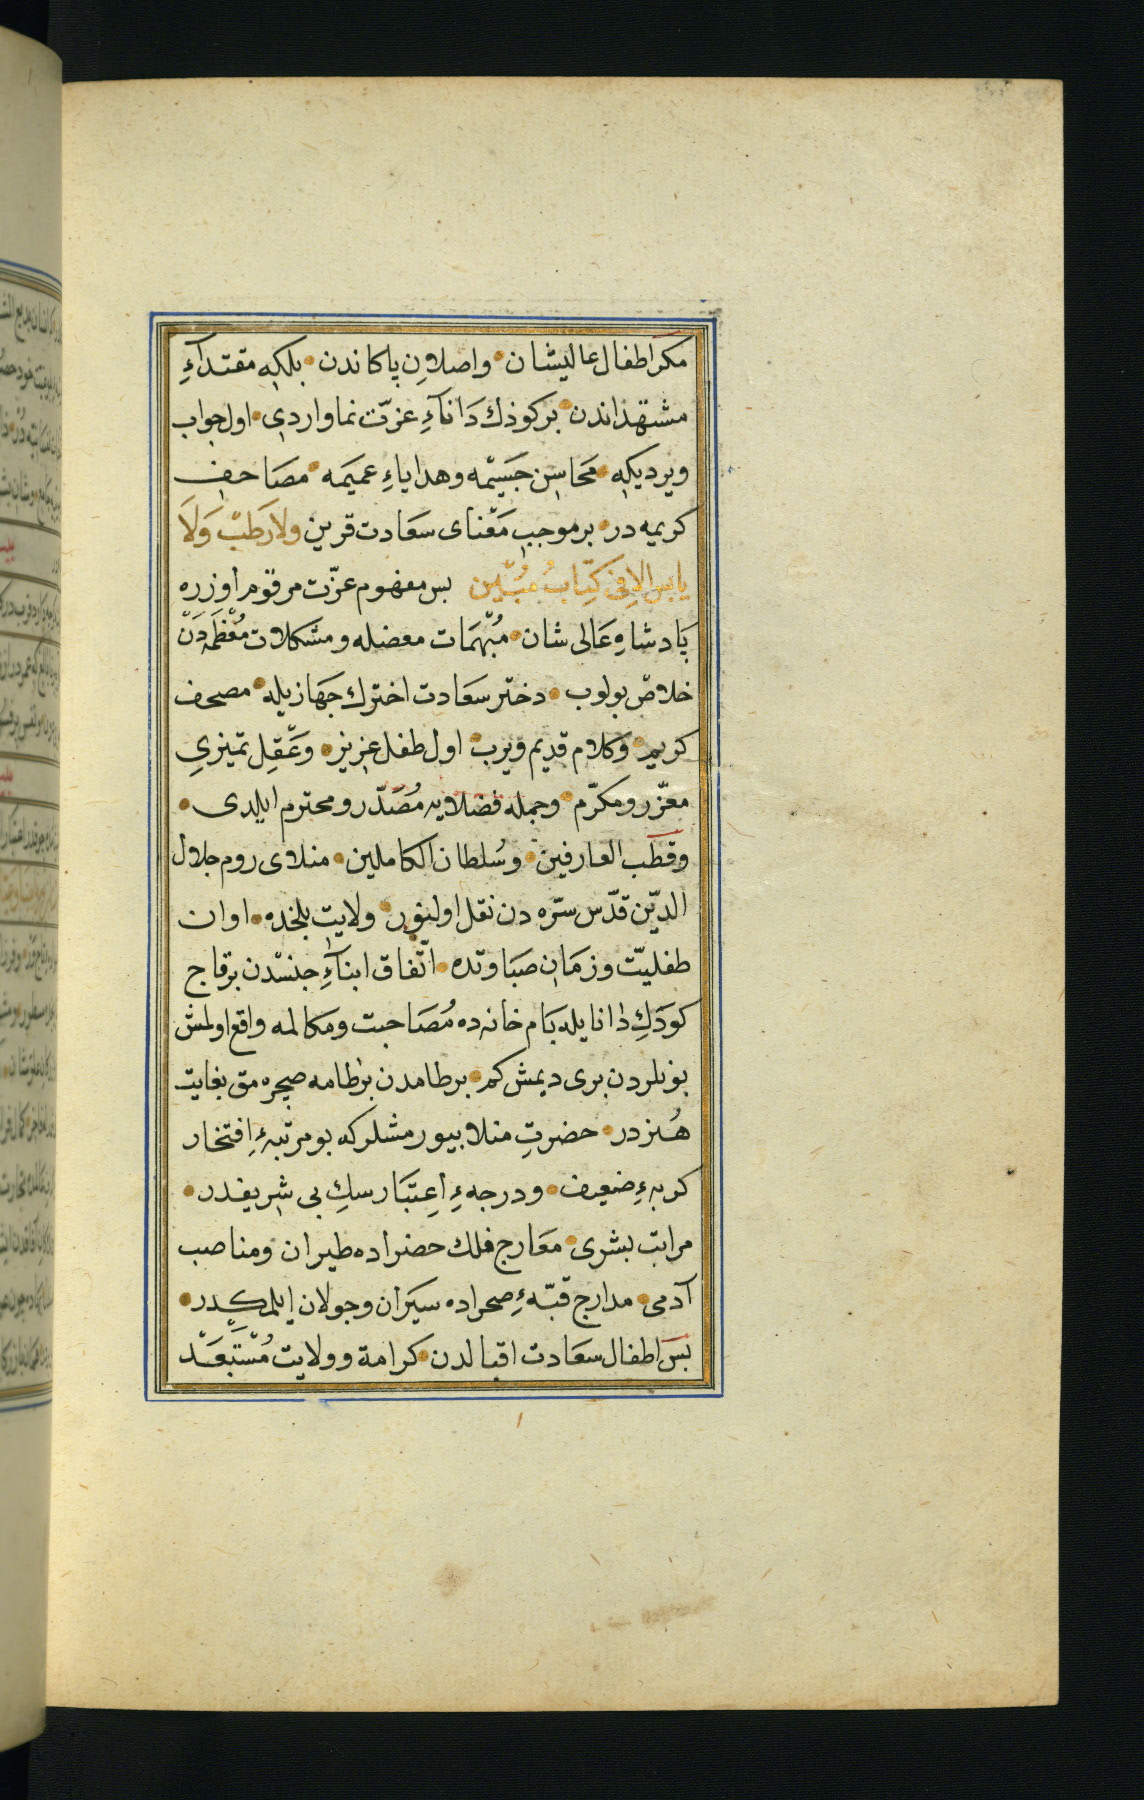 مكر اطفال عاليشان واصلان پاكاندن بلكه مقتدآءِ
مشتهداندن بر كوذك دَانآءِ عزّت نما واردى اول جواب
ويرديكه مَحَاسِن جَسَيمْه وهداياءِ عميمَه مصَاحف
كريمه در بر موجبِ مَعْناى سعَادت قرين ولا رَطبٌ وَلَا
يابس الا فِى كِتَابٌ مُبٌين بس مفهوم عزّت مرقوم اوزره
پَادشاهِ عَالى شان مُبْهمَات معضله ومشكلات مُعْظَمَه دَنْ
خلاصْ بولوب دختر سعَادت اخترك جَهَازيله مصحف
كريم وَكلام قديم ويرب اول طفل عزيز وَعَقِل تميزى
معزّر ومكرّم وجمله فضلايه مُصَدّر ومحترم ايلدى
وقطَب العارفين وسُلطان الكاملين منلاى روم جلال
الديّن قدّس سرّه دن نقل اولنور ولايت بلخده اوان
طفليتّ وزمَان صبَاوتده اتّفاق ابنآءِ جنسْدن بر قاج
كودَكِ دانا يله بَام خانه ده مُصَاحبت ومكالمه واقع اولمش
بونلردن برى ديمش كم بر طامدن بر طامه صيچره مق بغايت
هُنز در حضرتِ منلا بيورمشلر كه بو مرتبهءِ اِفتخار
كربهءِ ضعيف ودرجهءِ اِعِتبَار سكِ بى شريفدر
مراتب بشرى معَارج فلك حضراده طيران ومناصب
آدمى مدارج قبّهءِ صحراده سيَران وجولان ايلمكدر
بسَ اطفال سعَادت اقبالدن كرامة وولايت مُسْتَبعَدْ